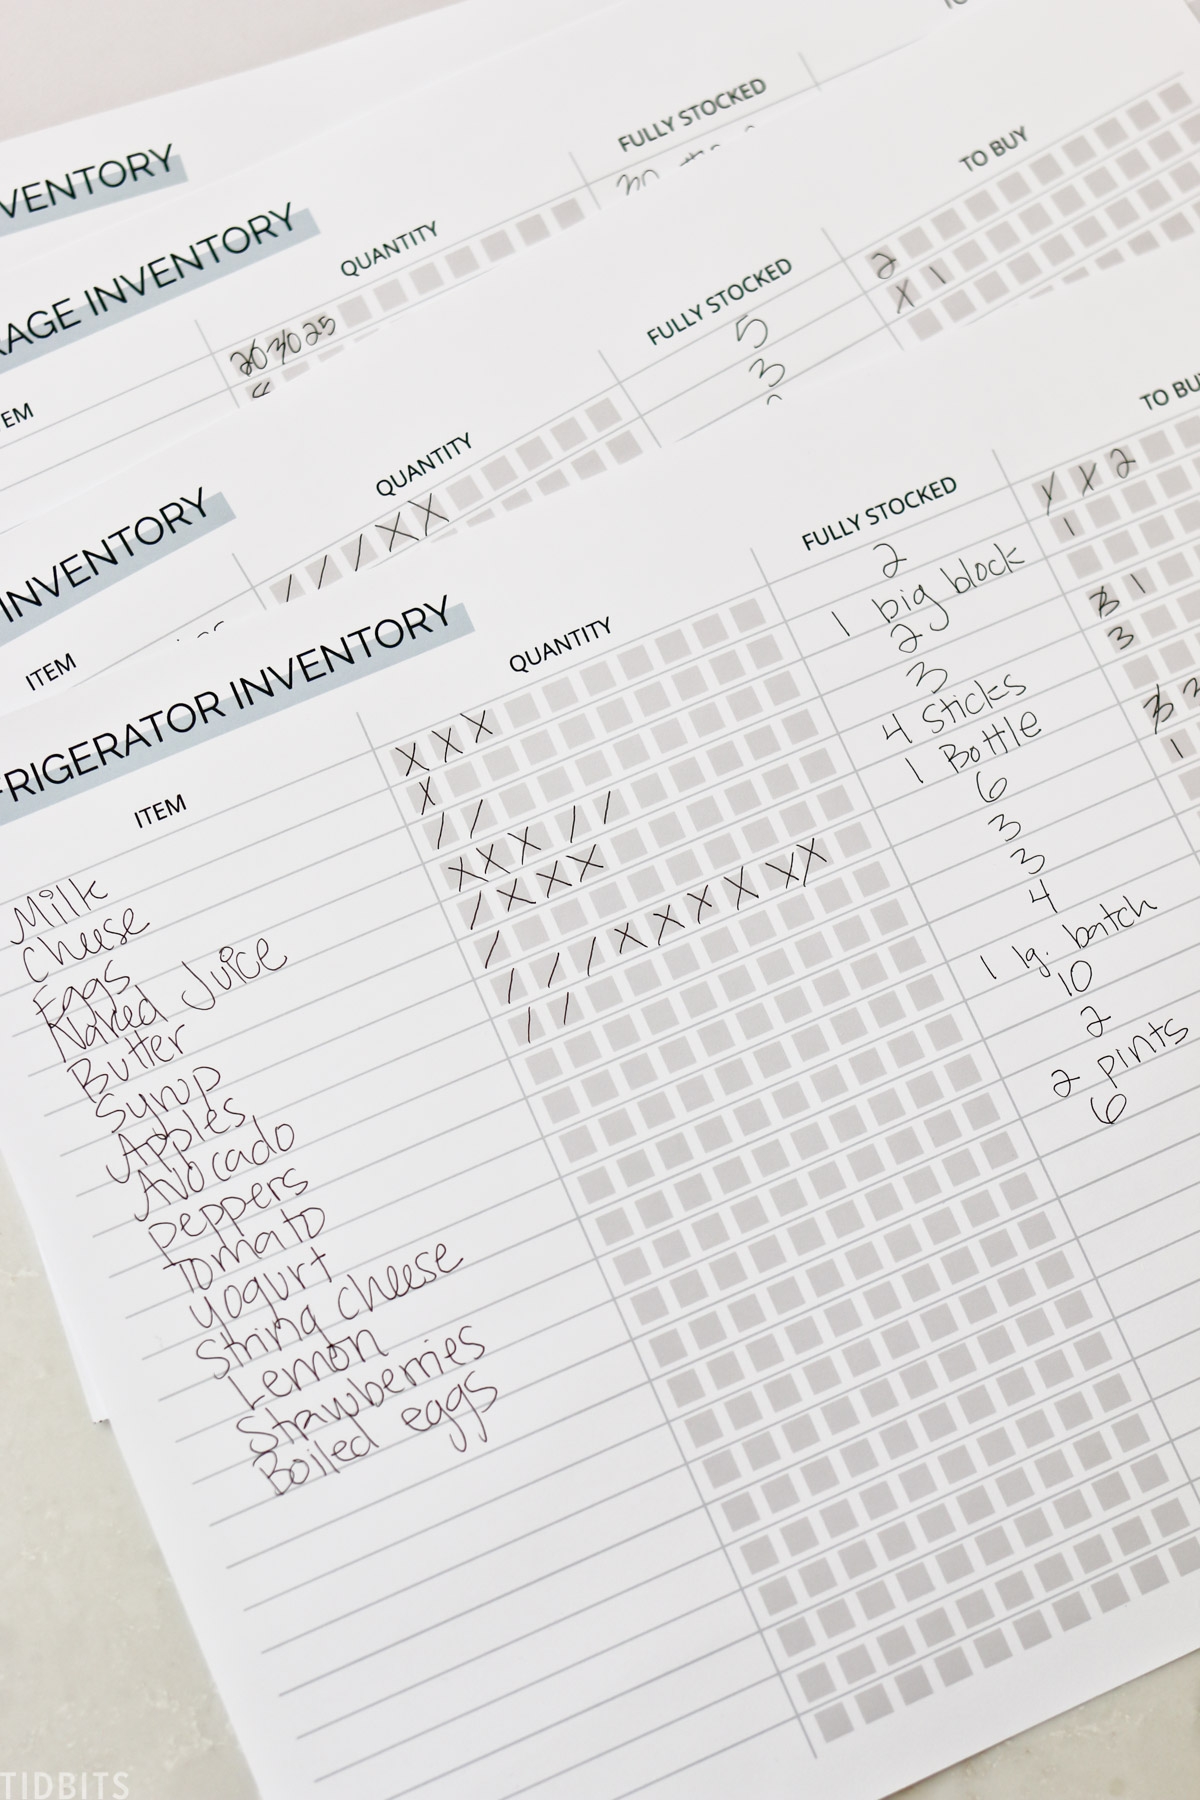 VENTORY
FULLY STOCKED
30
RAGE INVENTORY
QUANTITY
TO BUY
20 30 25
EM
FULLY STOCKED
5
3
2
X 1
INVENTORY
QUANTITY
/ / / X X
ITEM
REFRIGERATOR INVENTORY
ITEM QUANTITY FULLY STOCKED TO BU
Milk X X X 2 X X 2
Cheese X 1 big block 1
Eggs / / 2
Naked Juice X X X / / 3 3 1
Butter / X X X 4 Sticks 3
Syrup / 1 Bottle
Apples / / / X X X X X X 6 3
Avocado / / 3 1
peppers 3
Tomato 4
yogurt 1 lg. batch
String cheese 10
Lemon 2
Strawberries 2 pints
Boiled eggs 6
TIDBITS